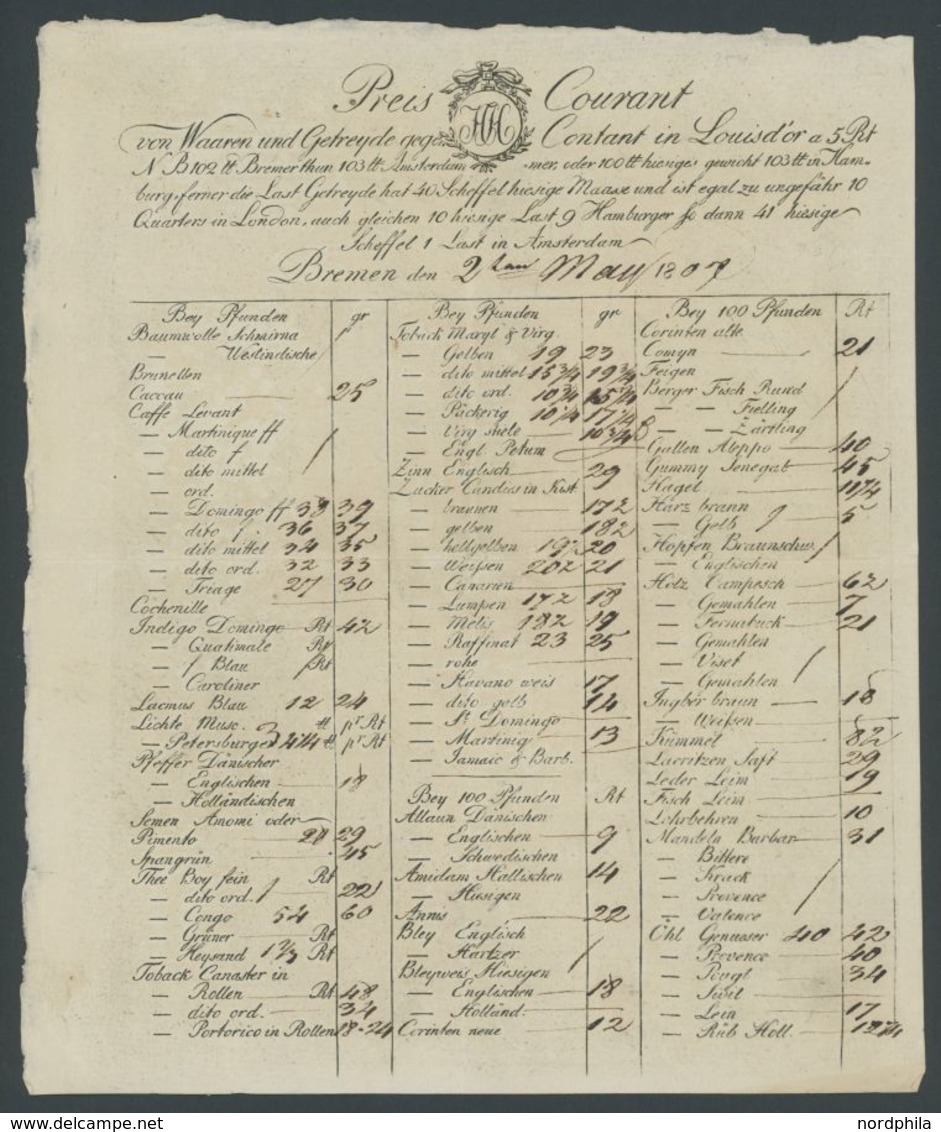 Preis Courant
JHH
von Waaren und Getreyde gegen Contant in Louisd'or a 5 Rt
N B 102 tt Bremer thun 103 tt Amsterdammer, oder 100 tt hiesiges gewicht 103 tt in Ham-
burg, ferner die Last Getreyde hat 40 Scheffel hiesige Maase und ist egal zu ungefähr 10
Quarters in London, auch gleichen 10 hiesige Last 9 Hamburger so dann 41 hiesige
Scheffel 1 Last in Amsterdam
Bremen den 2ten May 1807
Bey Pfunden gr
Baumwolle Schmirna
— Westindische
Brunellen
Caccau 25
Caffe Levant
— Martinique ff
— dito f
— dito mittel
— ord.
— Domingo ff 38 39
— dito f 36 37
— dito mittel 34 35
— dito ord. 32 33
— Triage 27 30
Cochenille
Indigo Domingo Rt 42
— Guatimale Rt
— f Blau Rt
— Caroliner
Lacmus Blau 12 24
Lichte Musc. tt pr Rt
— Petersburger 3 4 1/4 tt pr Rt
Pfeffer Dänischer
— Englischen 18
— Holländischen
Semen Amomi oder
Pimento 29
Spangrün 45
Thee Boy fein Rt
— dito ord. 22
— Congo 54 60
— Grüner Rt
— Heysand 1 2/3 Rt
Toback Canaster in
— Rollen Rt 48
— dito ord. 34
— Portorico in Rollen 18-24
Bey Pfunden gr
Toback Maryl & Virg.
— Gelben 19 23
— dito mittel 15 3/4 19 3/4
— dito ord. 10 3/4 15 1/4
— Päckerig 10 1/4 17 1/4
— Virg stele 10 3/4
— Engl. Petum
Zinn Englisch 29
Zucker Candies in Kist
— braunen 17 1/2
— gelben 18 1/2
— hellgelben 19 1/2 20
— Weissen 20 1/2 21
— Canarien
— Lumpen 17 1/2 18
— Melis 18 1/2 19
— Raffinat 23 25
— rohe
— Havano weis 17
— dito gelb 14
— St. Domingo
— Martiniq 13
— Jamaic & Barb.
Bey 100 Pfunden Rt
Allaun Dänischen
— Englischen 9
— Schwedischen
Amidam Hallischen 14
— Hiesigen
Annis 22
Bley Englisch
— Hartzer
Bleyweis Hiesigen
— Englischen 18
— Holländ.
Corinten neue 12
Bey 100 Pfunden Rt
Corinten alte
Comyn 21
Feigen
Berger Fisch Rund
— — Fietling
— — Zärtling
Gallen Aleppo 40
Gummy Senegal 45
Hagel 11 1/4
Härz braun
— Gelb 5
Hopfen Braunschw.
— Englischen
Holz Campesch 6 1/2
— Gemahlen 7
— Fernabuck 21
— Gemahlen
— Viset
— Gemahlen
Ingber braun 18
— Weissen
Kümmel 8 1/2
Lacritzen Saft 29
Leder Leim 19
Fisch Leim
Lohrbehren 10
Mandeln Barbar 31
— Bittere
— Krack
— Provence
— Valence
Öhl Genueser 40 42
— Provence 40
— Pougl 34
— Sivil
— Lein 17
— Rüb Holl.
nordphila